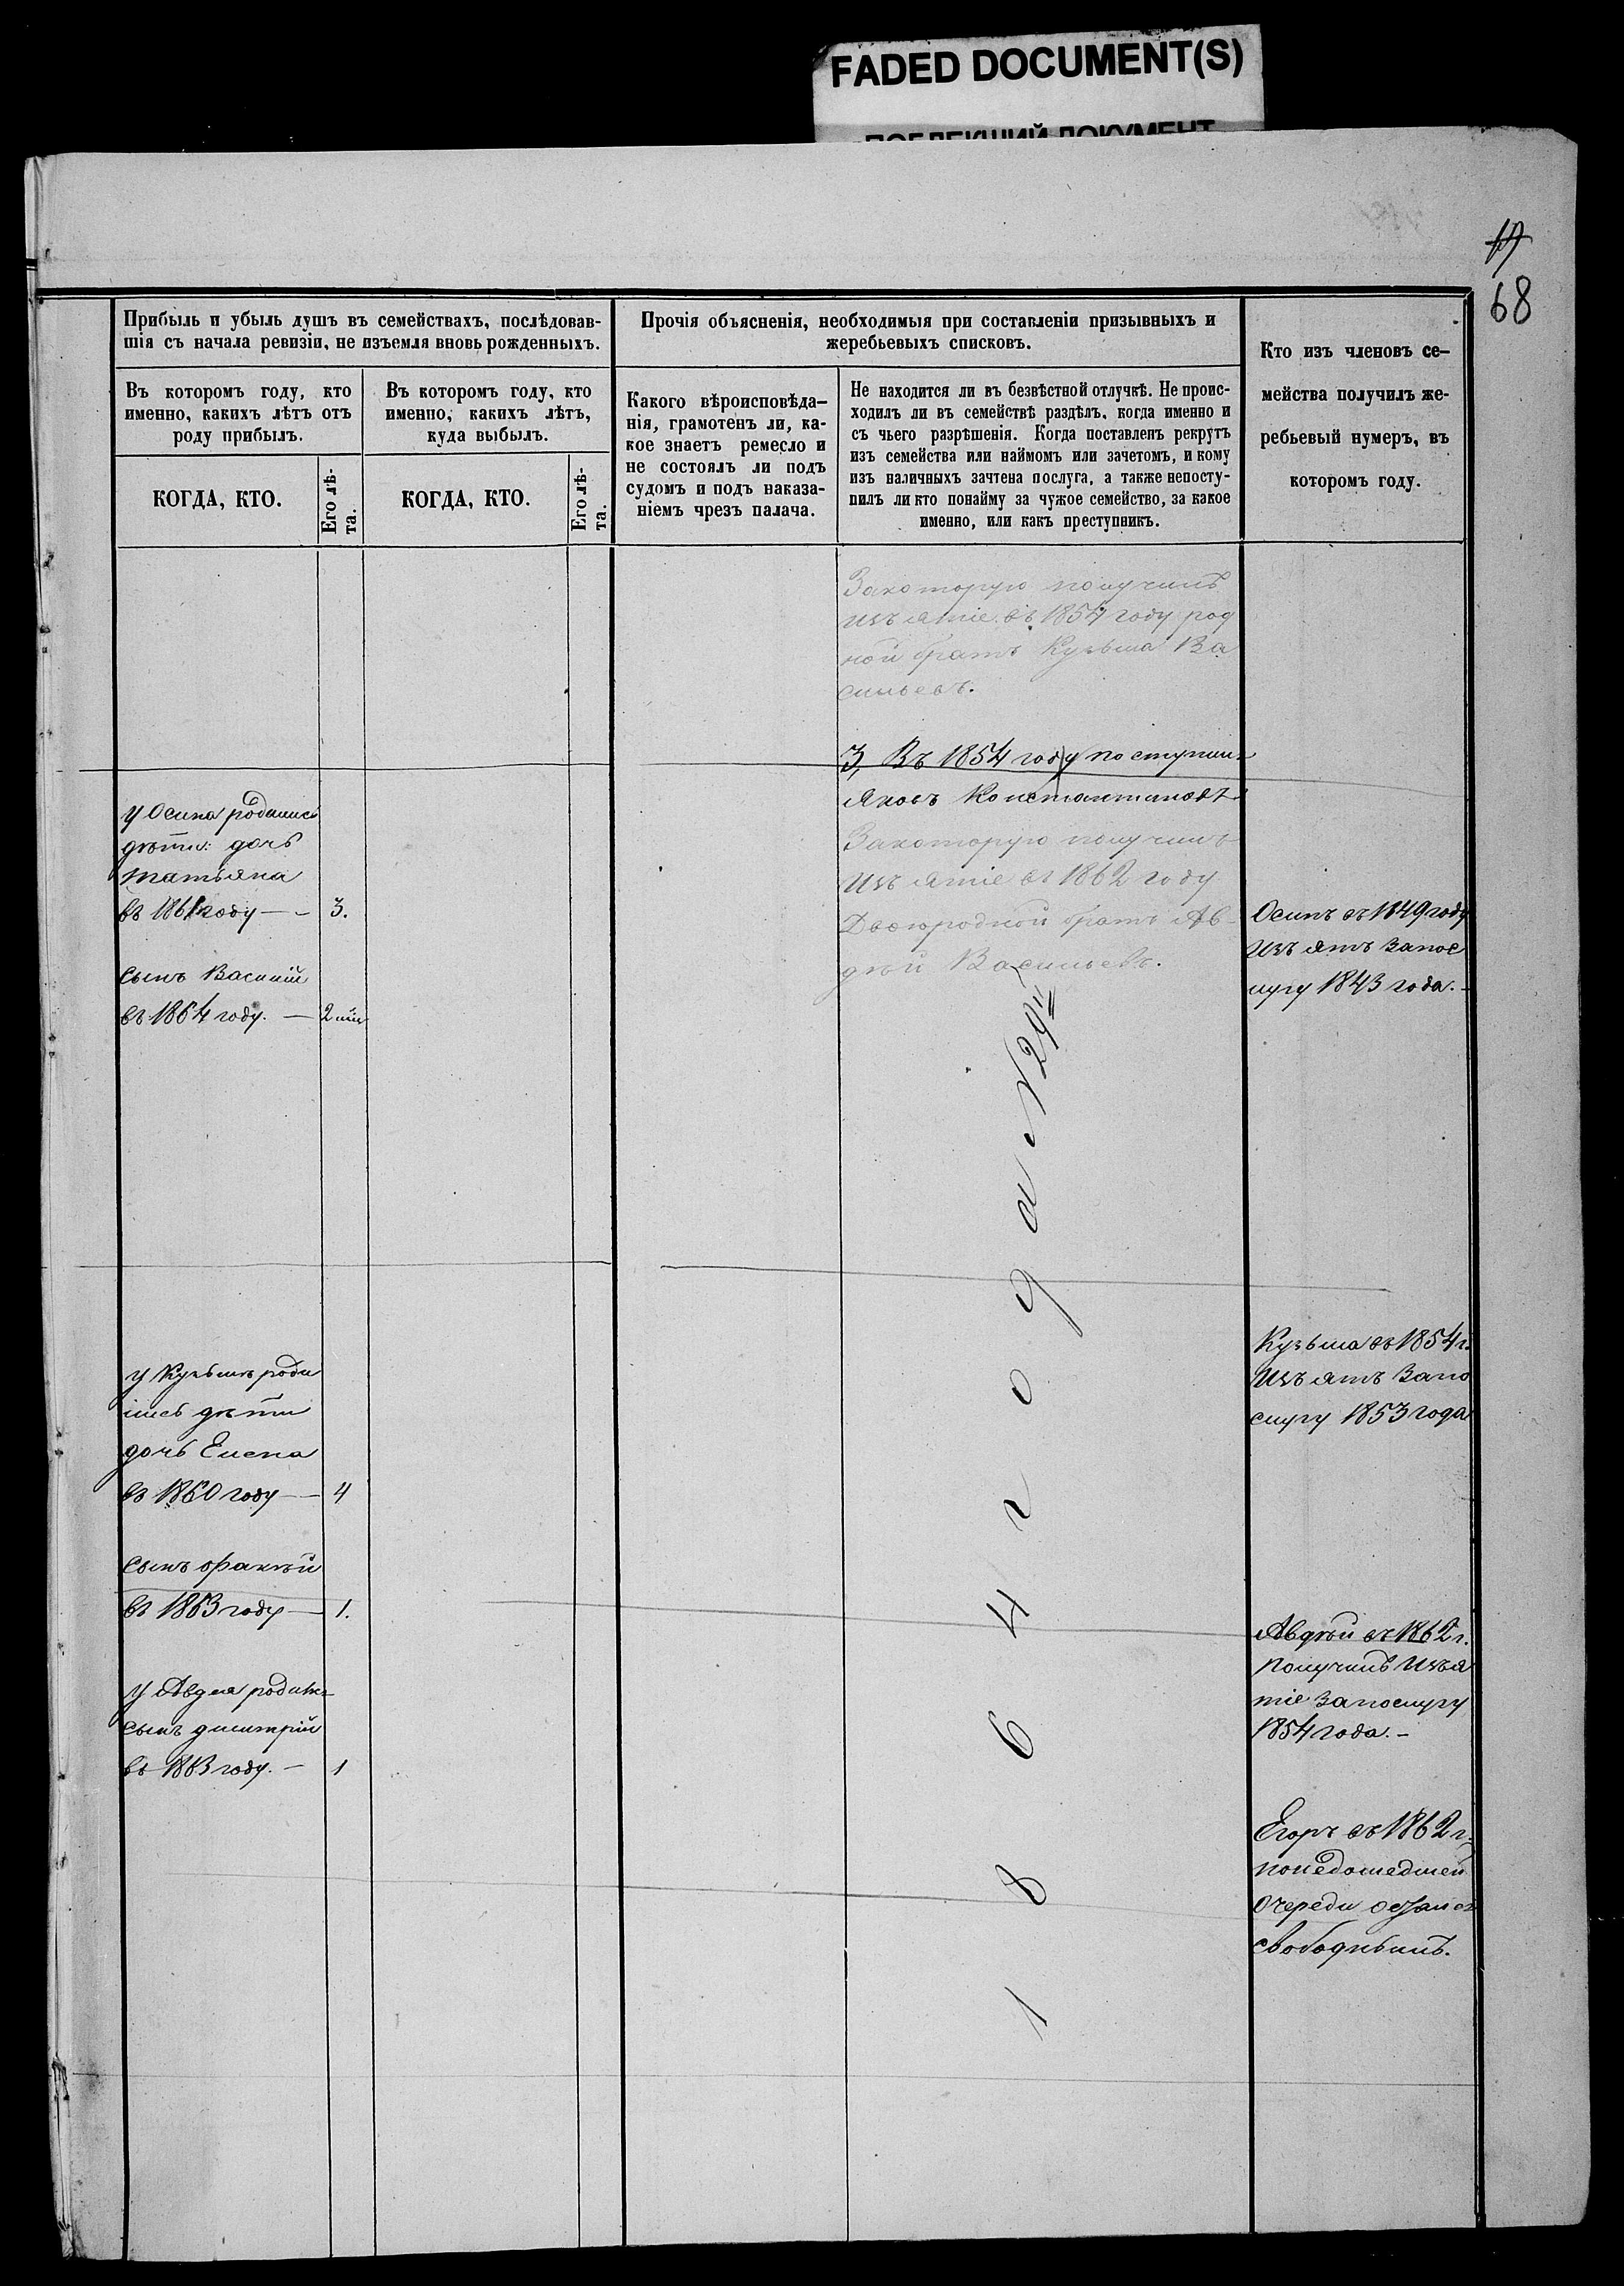 FADED DOCUMENT(S)
ПОБЛЕКШИЙ ДОКУМЕНТ
68
Прибыль и убыль душъ въ семействахъ, послѣдовав-
шія съ начала ревизіи, не изъемля вновь рожденныхъ.
Въ которомъ году, кто
именно, какихъ лѣтъ отъ
роду прибылъ.
КОГДА, КТО.
Его лѣ-
та.
Въ которомъ году, кто
именно, какихъ лѣтъ,
куда выбылъ.
КОГДА, КТО.
Его лѣ-
та.
Прочія объясненія, необходимыя при составленіи призывныхъ и
жеребьевыхъ списковъ.
Какого вѣроисповѣда-
нія, грамотенъ ли, ка-
кое знаетъ ремесло и
не состоялъ ли подъ
судомъ и подъ наказа-
ніемъ чрезъ палача.
Не находится ли въ безвѣстной отлучкѣ. Не проис-
ходилъ ли въ семействѣ раздѣлъ, когда именно и
съ чьего разрѣшенія. Когда поставленъ рекрутъ
изъ семейства или наймомъ или зачетомъ, и кому
изъ наличныхъ зачтена послуга, а также непосту-
пилъ ли кто понайму за чужое семейство, за какое
именно, или какъ преступникъ.
Кто изъ членовъ се-
мейства получилъ же-
ребьевый нумеръ, въ
которомъ году.
у Осипа родились
дѣти: дочь
татьяна
въ 1861 году — - 3.
сынъ Василій
въ 1864 году. —
у Кузьмы роди
лись дѣти
дочь Елена
въ 1860 году — 4
сынъ
въ 1863 году — 1.
у Авдея родился
сынъ дмитрій
въ 1863 году. — 1
Закоторую получилъ
изъятіе въ 1854 году род
ной братъ Кузьма Ва
сильевъ.
3, Въ 1854 году поступилъ
Яковъ Константиновъ
Закоторую получилъ
изъятіе въ 1862 году
Двоюродной братъ Ав-
дѣй Васильевъ.
1864 года N 29
Осипъ въ 1849 году
изъятъ запос
лугу 1843 года.-
Кузьма въ 1854 г.
изъятъ запо
слугу 1853 года
Авдѣй въ 1862 г.
получилъ изъя
тіе запослугу
1854 года.-
Егоръ въ 1862 г.
понедошедшей
очереди остался
свободнымъ.